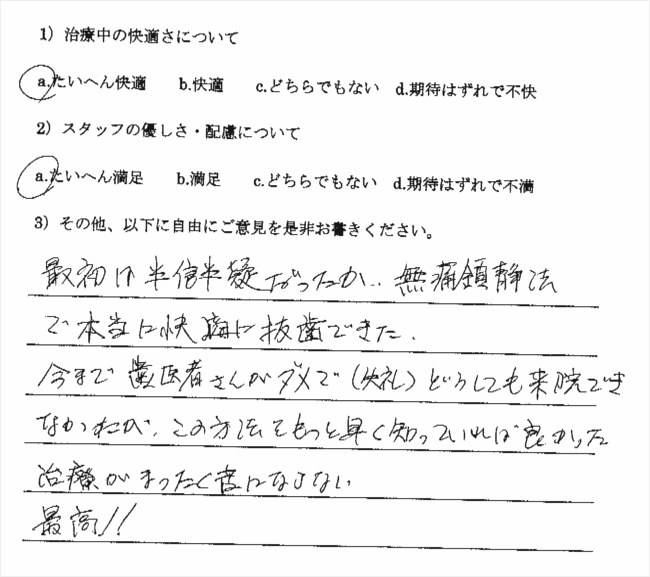 1) 治療中の快適さについて
a.たいへん快適 b.快適 c.どちらでもない d.期待はずれで不快
2) スタッフの優しさ・配慮について
a.たいへん満足 b.満足 c.どちらでもない d.期待はずれで不満
3) その他、以下に自由にご意見を是非お書きください。
最初は半信半疑だったが‥無痛鎮静法
で本当に快適に抜歯できた.
今まで歯医者さんがダメで(失礼)どうしても来院でき
なかったが、この方法をもっと早く知っていれば良かった
治療がまったく苦にならない
最高!!